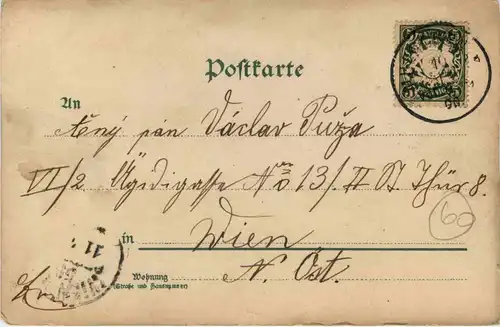 Postkarte
An
Ctěný pán Václav Puža
VI/2 Ägidigasse No 13/II St. Thür 8.
in Wien
N. Öst.
Wohnung
(Straße und Hausnummer)
60
11